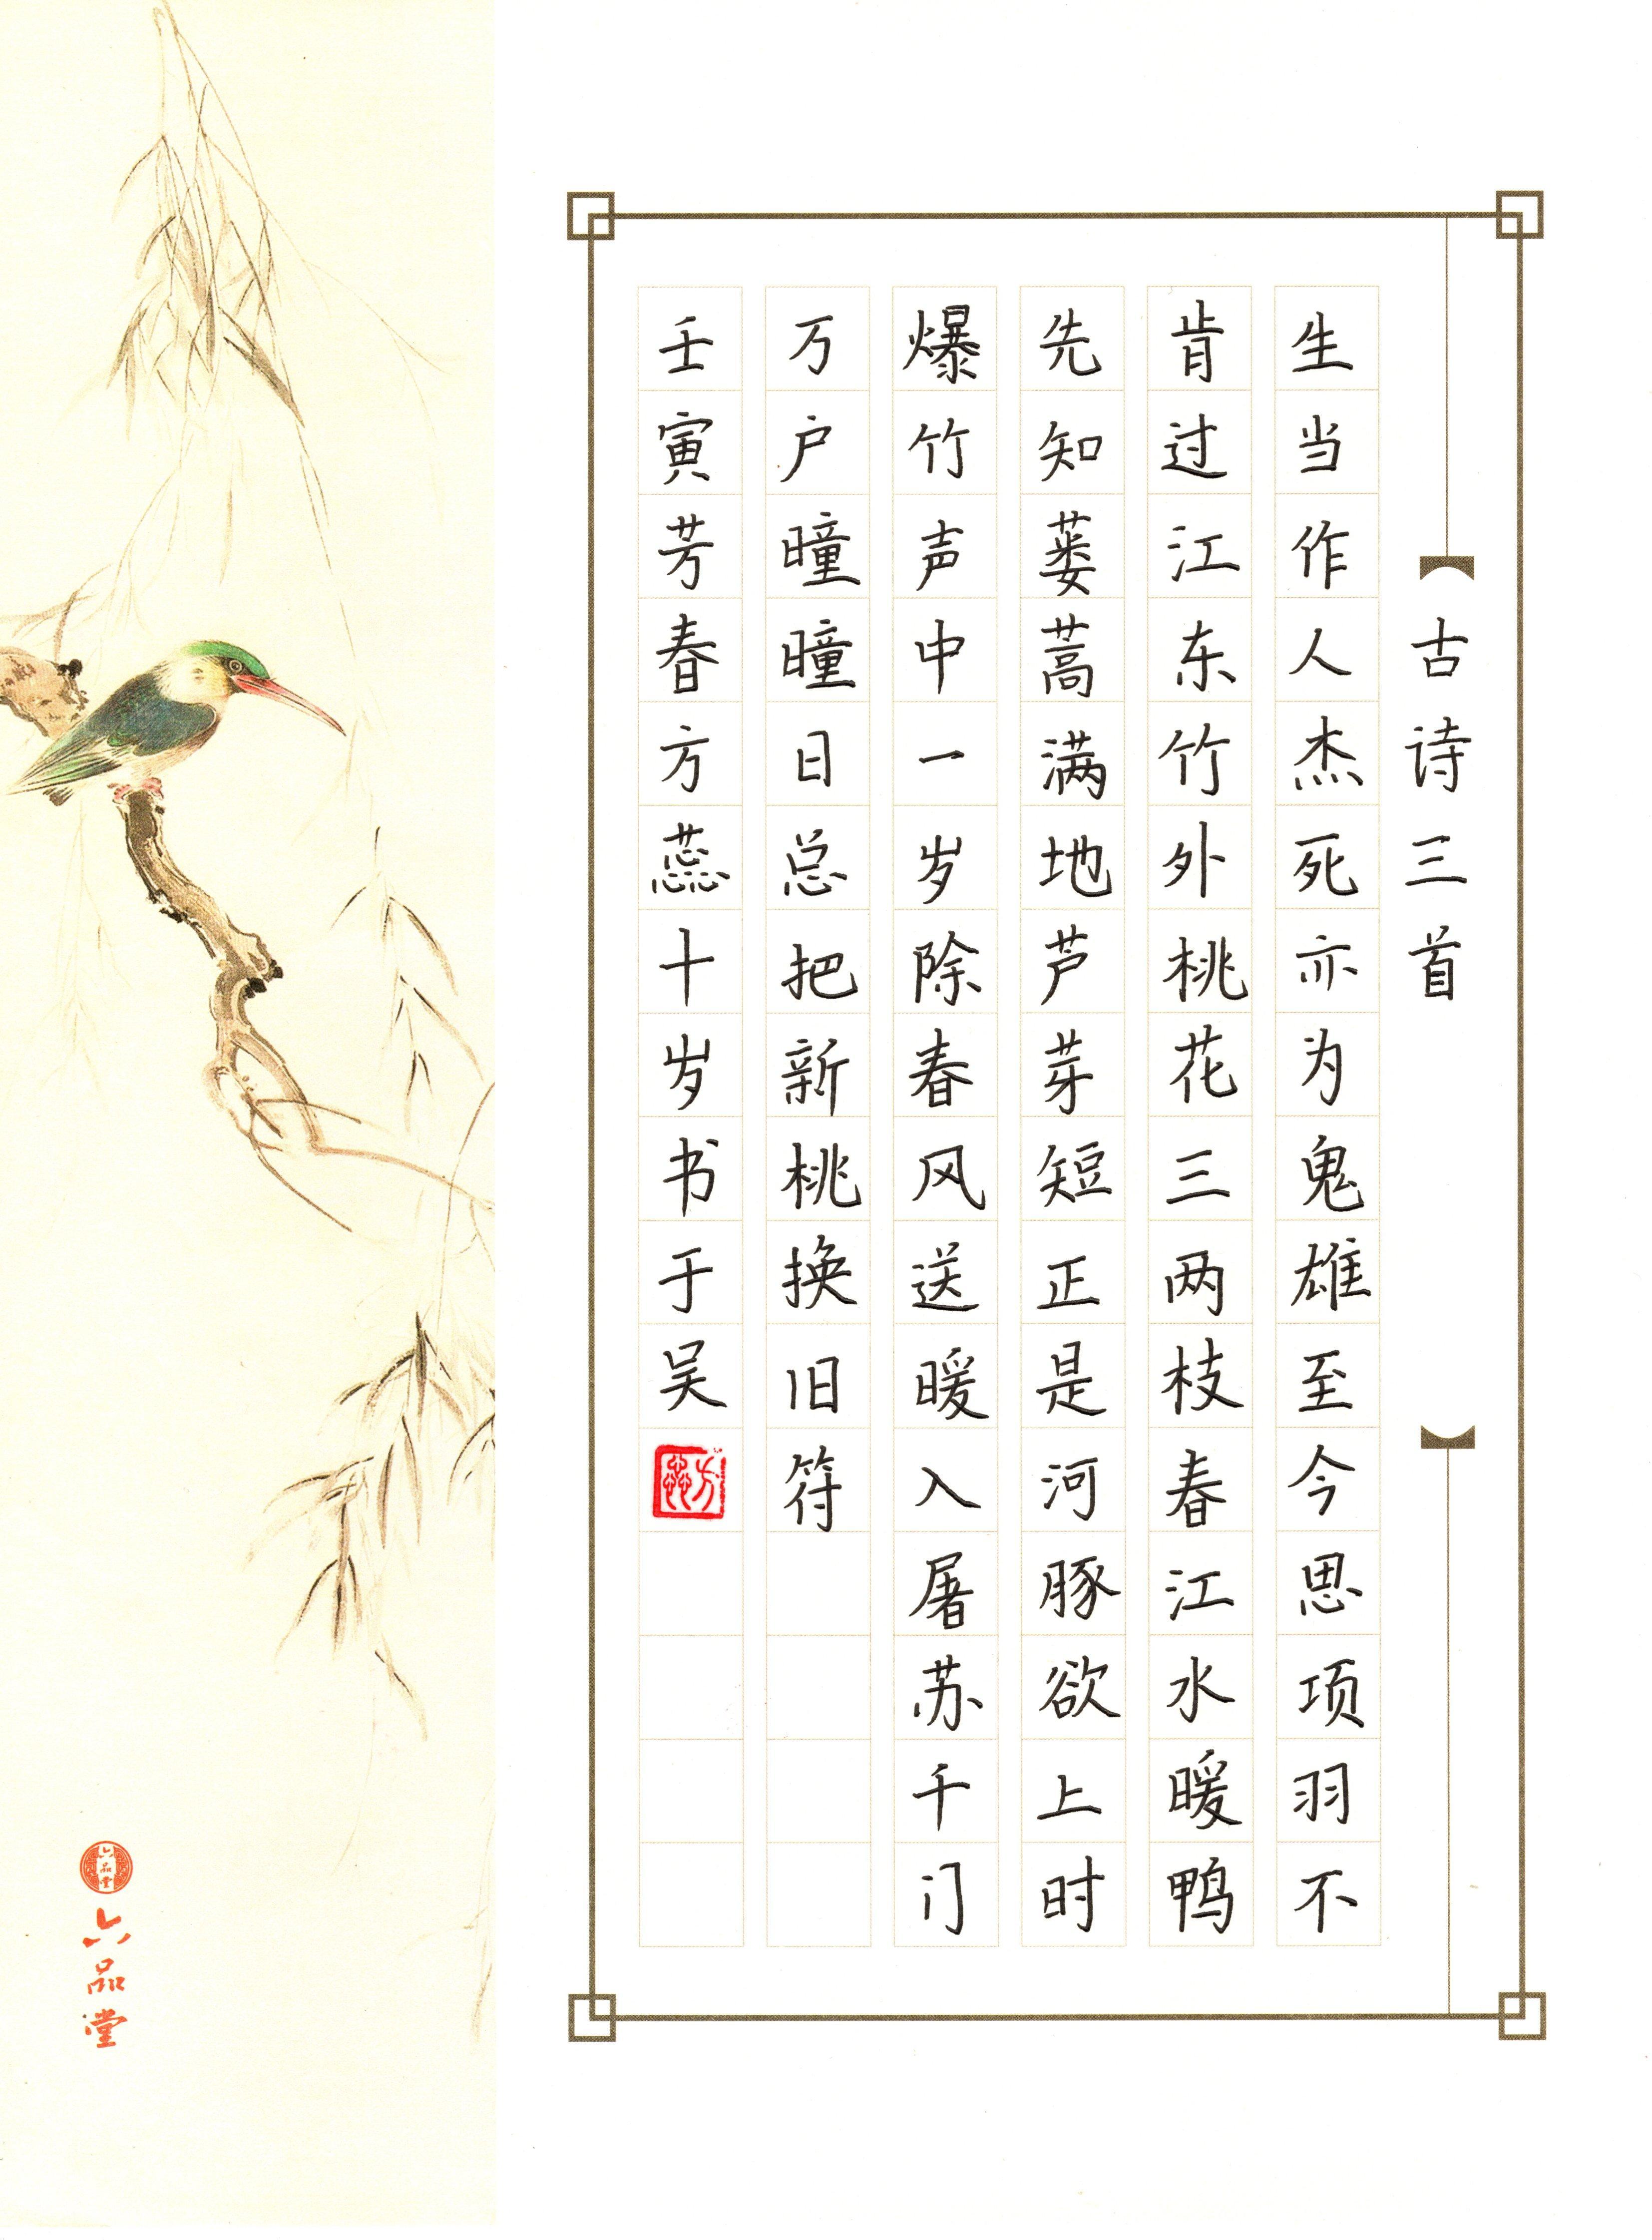 古诗三首
生当作人杰死亦为鬼雄至今思项羽不
肯过江东竹外桃花三两枝春江水暖鸭
先知蒌蒿满地芦芽短正是河豚欲上时
爆竹声中一岁除春风送暖入屠苏千门
万户曈曈日总把新桃换旧符
壬寅芳春方蕊十岁书于吴
方蕊
六品堂
六品堂